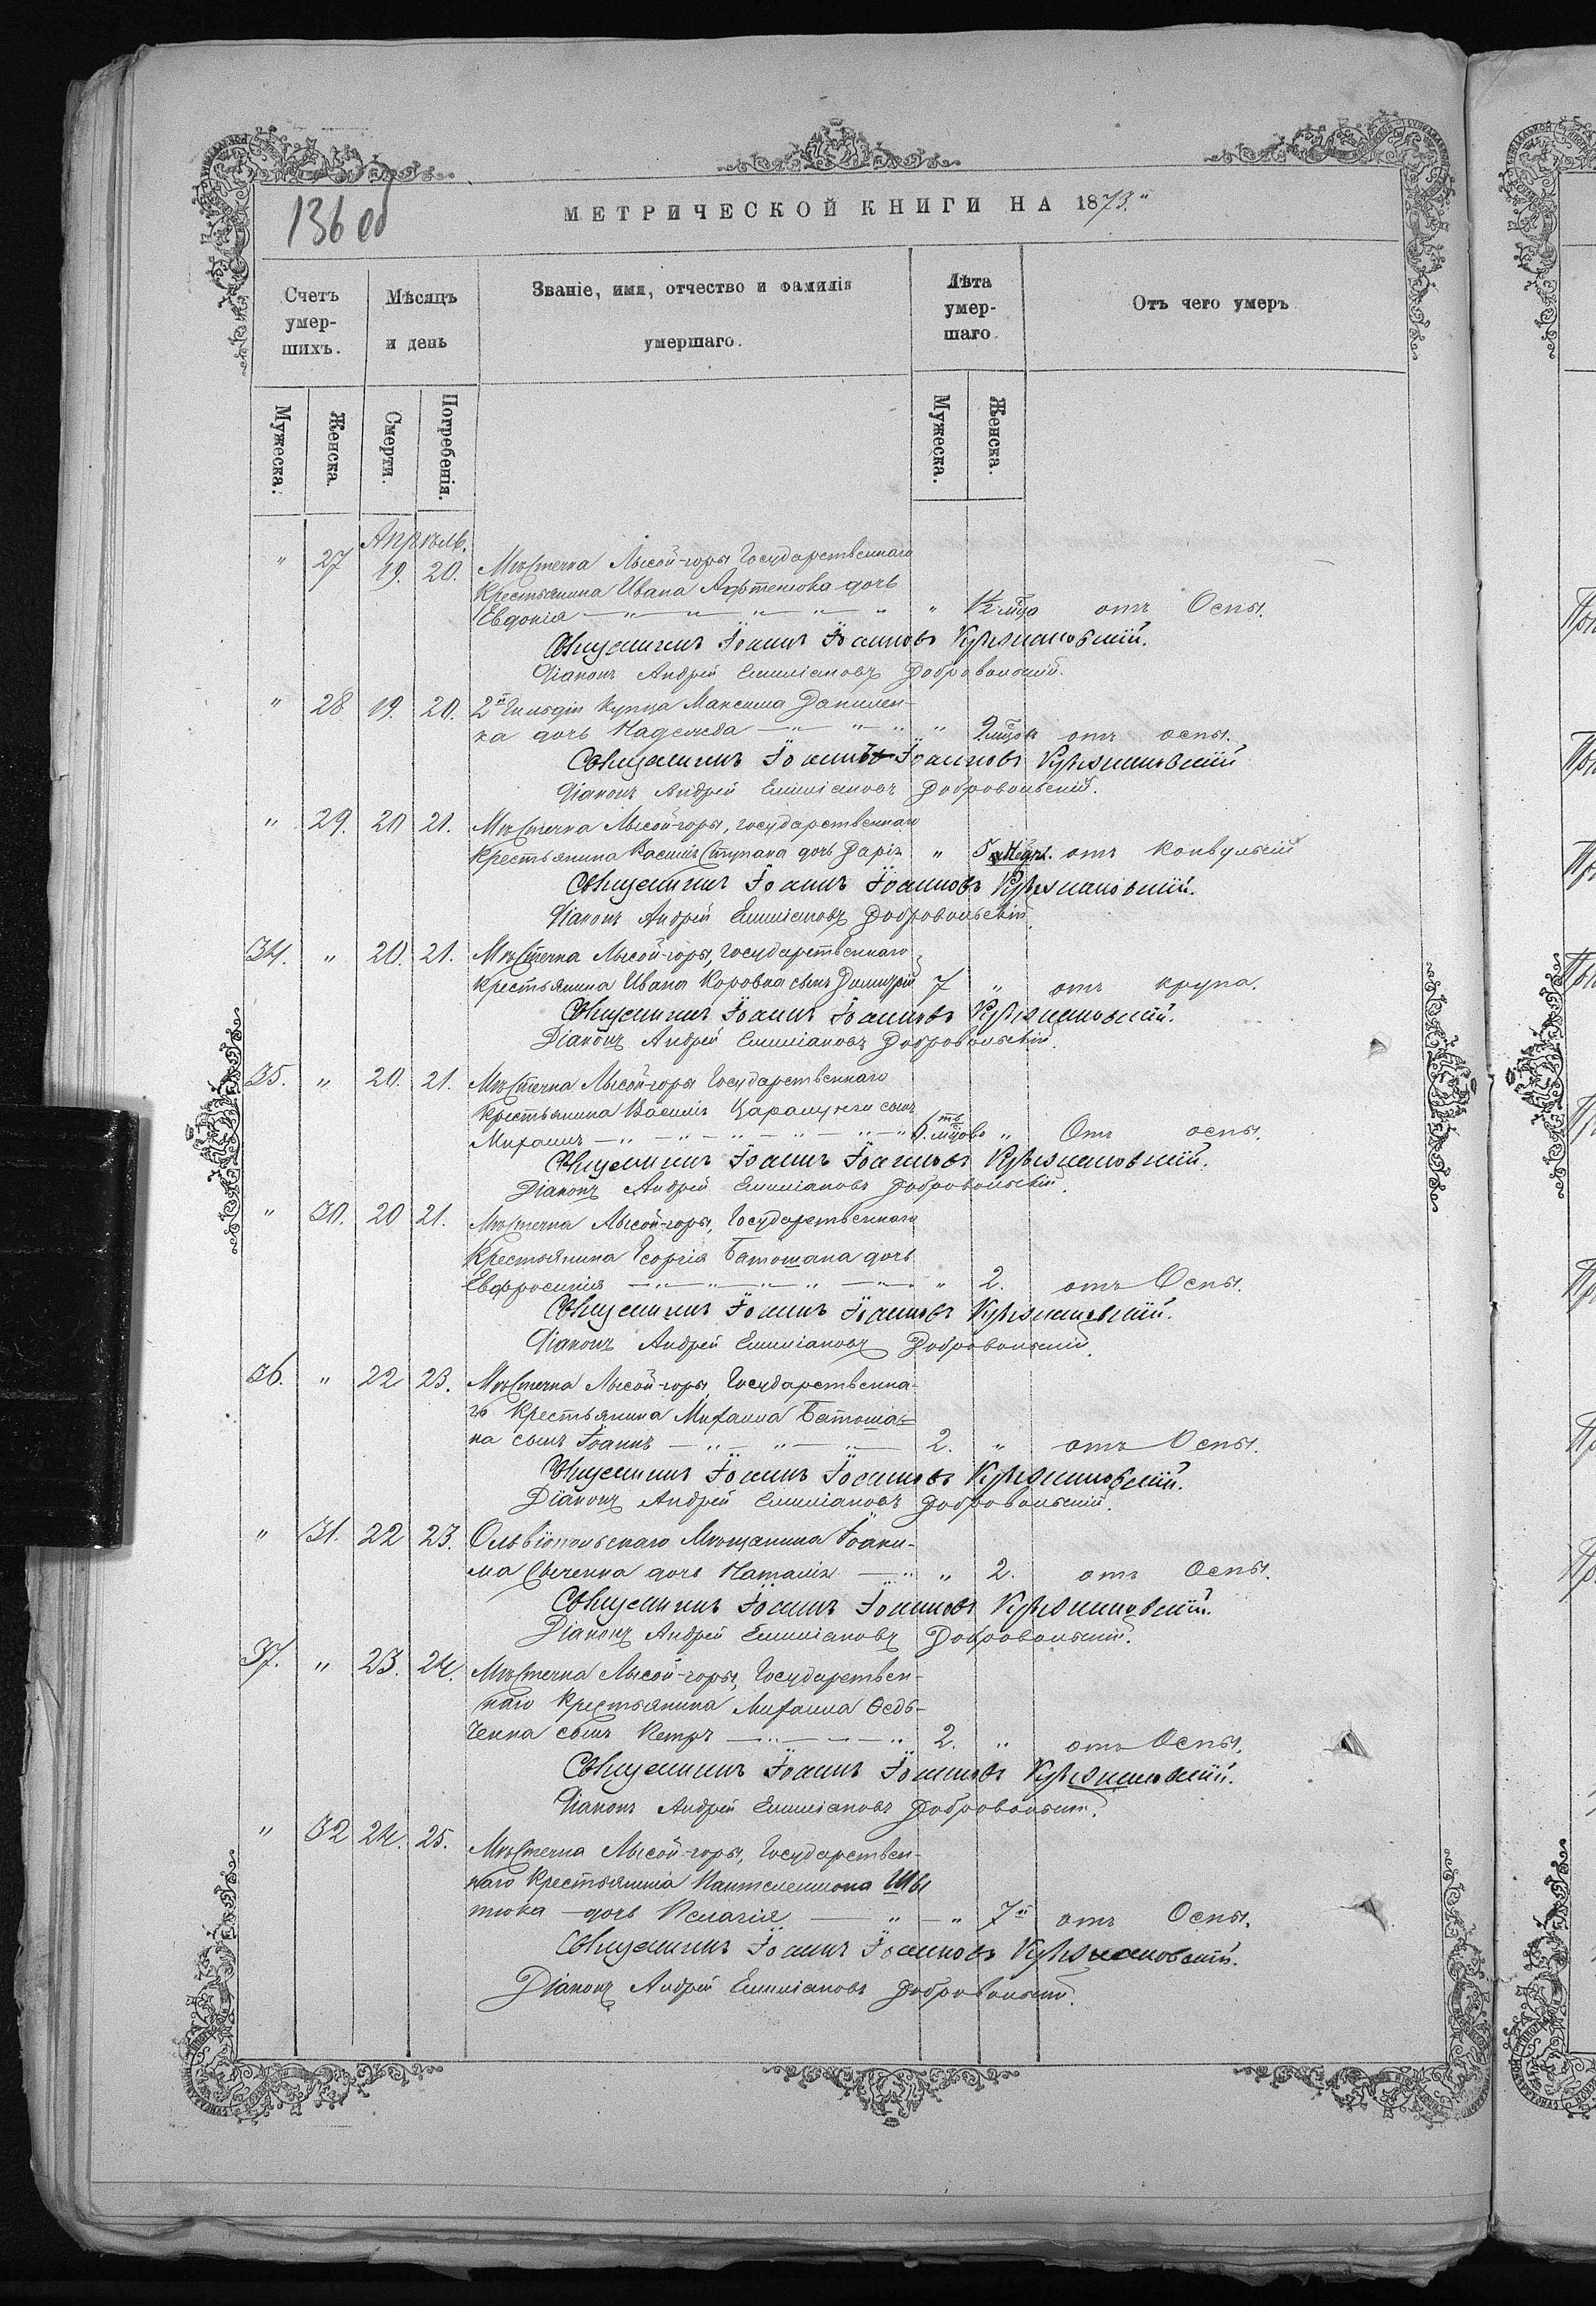 136 об
МЕТРИЧЕСКОЙ КНИГИ НА 1873."
Счетъ умер-шихъ.
Мѣсяцъ и день
Званіе, имя, отчество и фамилія умершаго.
Лѣта умер-шаго.
Отъ чего умеръ
Мужеска.
Женска.
Смерти.
Погребенія.
Мужеска.
Женска.
Апрѣль.
" 27 19. 20. Мѣстечка Лысой-горы Государственнаго
Крестьянина Ивана дочь
Евдокія — " — " — " — " " " 1½ мца отъ Оспы.
Священникъ Іоаннъ Іоанновъ
Діаконъ Андрей Емиліановъ Добровольскій.
" 28 19. 20. 2й Гильдіи Купца Максима Данилен-
ка дочь Надежда — " — " — " " 9 мцовъ отъ оспы.
Священникъ Іоаннъ Іоанновъ
Діаконъ Андрей Емиліановъ Добровольскій.
" 29. 20 21. Мѣстечка Лысой-горы, государственнаго
Крестьянина Василія Ступака дочь Дарія " 5 отъ конвульсій
Священникъ Іоаннъ Іоанновъ
Діаконъ Андрей Емиліановъ Добровольскій.
34. " 20. 21. Мѣстечка Лысой-горы, Государственнаго
крестьянина Ивана Коровка сынъ Димитрій 7 " отъ крупа.
Священникъ Іоаннъ Іоанновъ
Діаконъ Андрей Емиліановъ Добровольскій.
35. " 20. 21. Мѣстечка Лысой-горы Государственнаго
Крестьянина Василія сынъ
Михаилъ — " — " — " — " — " — " мцовъ " Отъ оспы.
Священникъ Іоаннъ Іоанновъ
Діаконъ Андрей Емиліановъ Добровольскій.
" 30. 20 21. Мѣстечка Лысой-горы, Государственнаго
Крестьянина Георгія Батошана дочь
Евфросинія — " — " — " — " — " — " 2. отъ Оспы.
Священникъ Іоаннъ Іоанновъ
Діаконъ Андрей Емиліановъ Добровольскій.
36. " 22 23. Мѣстечка Лысой-горы, Государственна-
го Крестьянина Михаила Батоша=
на сынъ Іоаннъ — " — " — " — 2. " отъ Оспы.
Священникъ Іоаннъ Іоанновъ
Діаконъ Андрей Емиліановъ Добровольскій.
" 31. 22 23. Ольвіопольскаго Мѣщанина Іоаки-
ма дочь Наталія — " " 2. отъ Оспы.
Священникъ Іоаннъ Іоанновъ
Діаконъ Андрей Емиліановъ Добровольскій.
37. " 23. 24. Мѣстечка Лысой-горы, Государствен-
наго Крестьянина Михаила Ѳедь-
ченка сынъ Петръ — " — " — " 2. " отъ Оспы.
Священникъ Іоаннъ Іоанновъ
Діаконъ Андрей Емиліановъ Добровольскій.
" 32 24. 25. Мѣстечка Лысой-горы, Государствен-
наго Крестьянина Пантелеимона Шы
тюка — дочь Пелагія — " — " 7 отъ Оспы.
Священникъ Іоаннъ Іоанновъ
Діаконъ Андрей Емиліановъ Добровольскій.